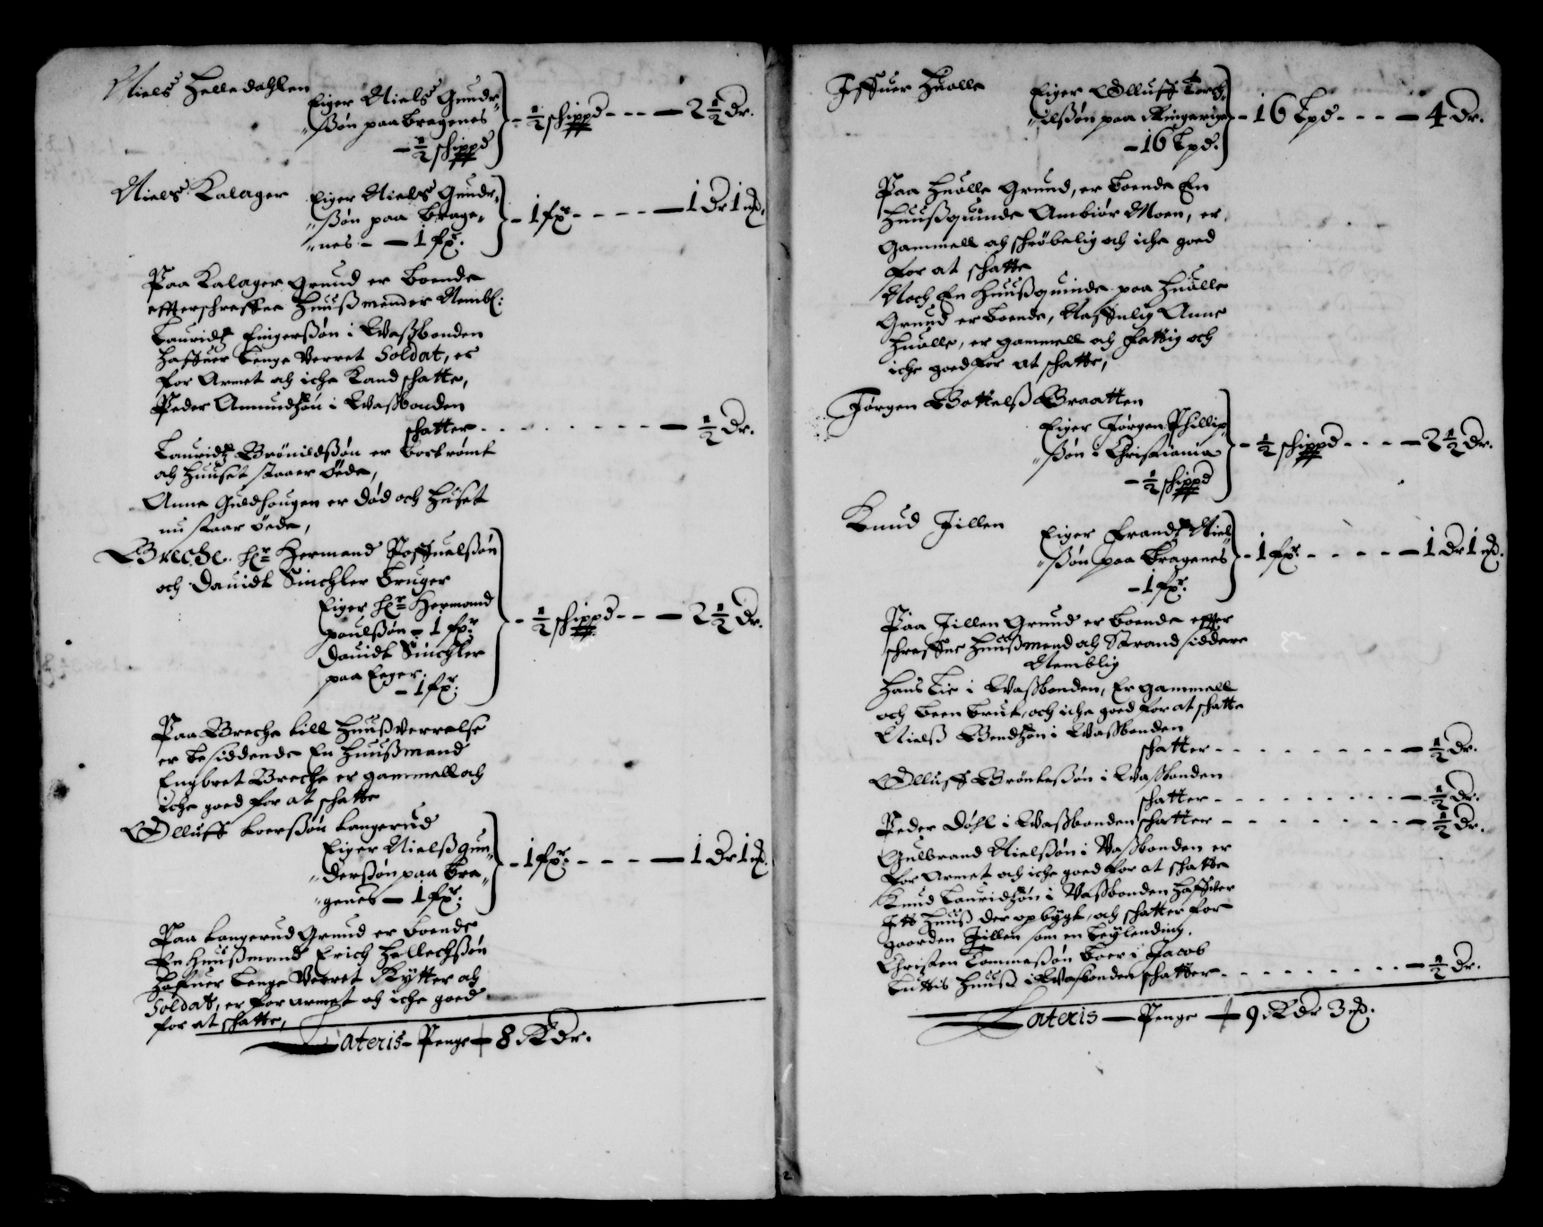 Niels Helledahlen
Eiger Niels Gunder-
„sßøn paa bragenes
- ½ schippd
- ½ schippd - - - - 2½ Dr.
Niels Kalager
Eiger Niels Gunder-
„sßøn paa brage-
„nes - - 1 fxr.
- 1 fxr - - - - 1 Dr 1 ₰.
Paa Kalager Grund er boende
effterschreffne Huußmender Nembl:
Lauridtz Eingerßøn i Waßbonden
haffuer lenge Verret Soldat, er
for Armet och iche kand schatte,
Peder Amundßøn i Waßbonden
schatter - - - - - - - - ½ Dr.
Lauridtz Brønildßøn er bortrømt
och Huuset staaer Øede,
Anne Guldhougen er død och Huset
nu staar øede,
Breche. hr. Hermand Poffuelßøn
och Dauidt Sinchler bruger
Eiger hr. Hermand
paulßøn - 1 fxr:
Dauidt Sinchler
paa Eeger.
- 1 fxr:
- ½ schippd - - - 2½ Dr.
Paa Breche till Huuß Verrelse
er besiddende En Huußmand
Engbret Breche er gammell och
iche goed for at schatte
Olluff korßøn Langerud
Eiger Nielß gun-
„derßøn paa bra-
„genes - 1 fxr:
- 1 fxr. - - - - 1 Dr 1 ₰.
Paa Langerud Grund er boende
En Huußmand Erich Hellechßøn
Hafuer lenge Verret Rytter och
Soldat, er for armet och iche goed
for at schatte,
Lateris - Penge - 8 Rdr.
Iffuer Huolle
Eiger Olluff
„ilßøn paa Ringerige
- 16 Lpd.
- 16 Lpd - - - - 4 Dr.
Paa Huolle Grund, er boende En
Huußquinde Ambiør Moen, er
Gammell och schrøbelig och iche goed
for at schatte
Noch En Huußquinde paa Huolle
Grund er boende, Naffnlig Anne
Huolle, er gammell och fattig och
iche goed for at schatte,
Jørgen Bottelß Braatten
Eiger Jørgen Phillip
„sßøn i Christiania
- ½ schippd
- ½ schippd - - - - 2½ Dr.
Knud Jillen
Eiger Frandtz Niel-
„sßøn paa bragenes
- 1 fxr.
- 1 fxr - - - - 1 Dr 1 ₰.
Paa Jillen Grund er boende effter
schreffne Huußmend och Strandsiddere
Nemblig
Hans Lie i Waßbonden, Er gammell
och been brut, och iche goed for at schatte
Nielß Bendtßøn i Waßbonden
schatter - - - - - - - - ½ Dr.
Olluff Brønteßøn i Waßbonden
schatter - - - - - - - - ½ Dr.
Peder Døhl i Waßbonden schatter - - - - - - - ½ Dr.
Gulbrand Nielßøn i Waßbonden er
for Armet och iche goed for at schatte
Knud Lauridtßøn i Waßbonden haffuer
Itt Huuß der opbygt, och schatter for
gaarden Jillen som en leylending.
Christen Tommeßøn boer i Jacob
Huuß i Waßbonden schatter - - - - - - - ½ Dr.
Lateris - Penge - 9 Rdr 3 ₰.